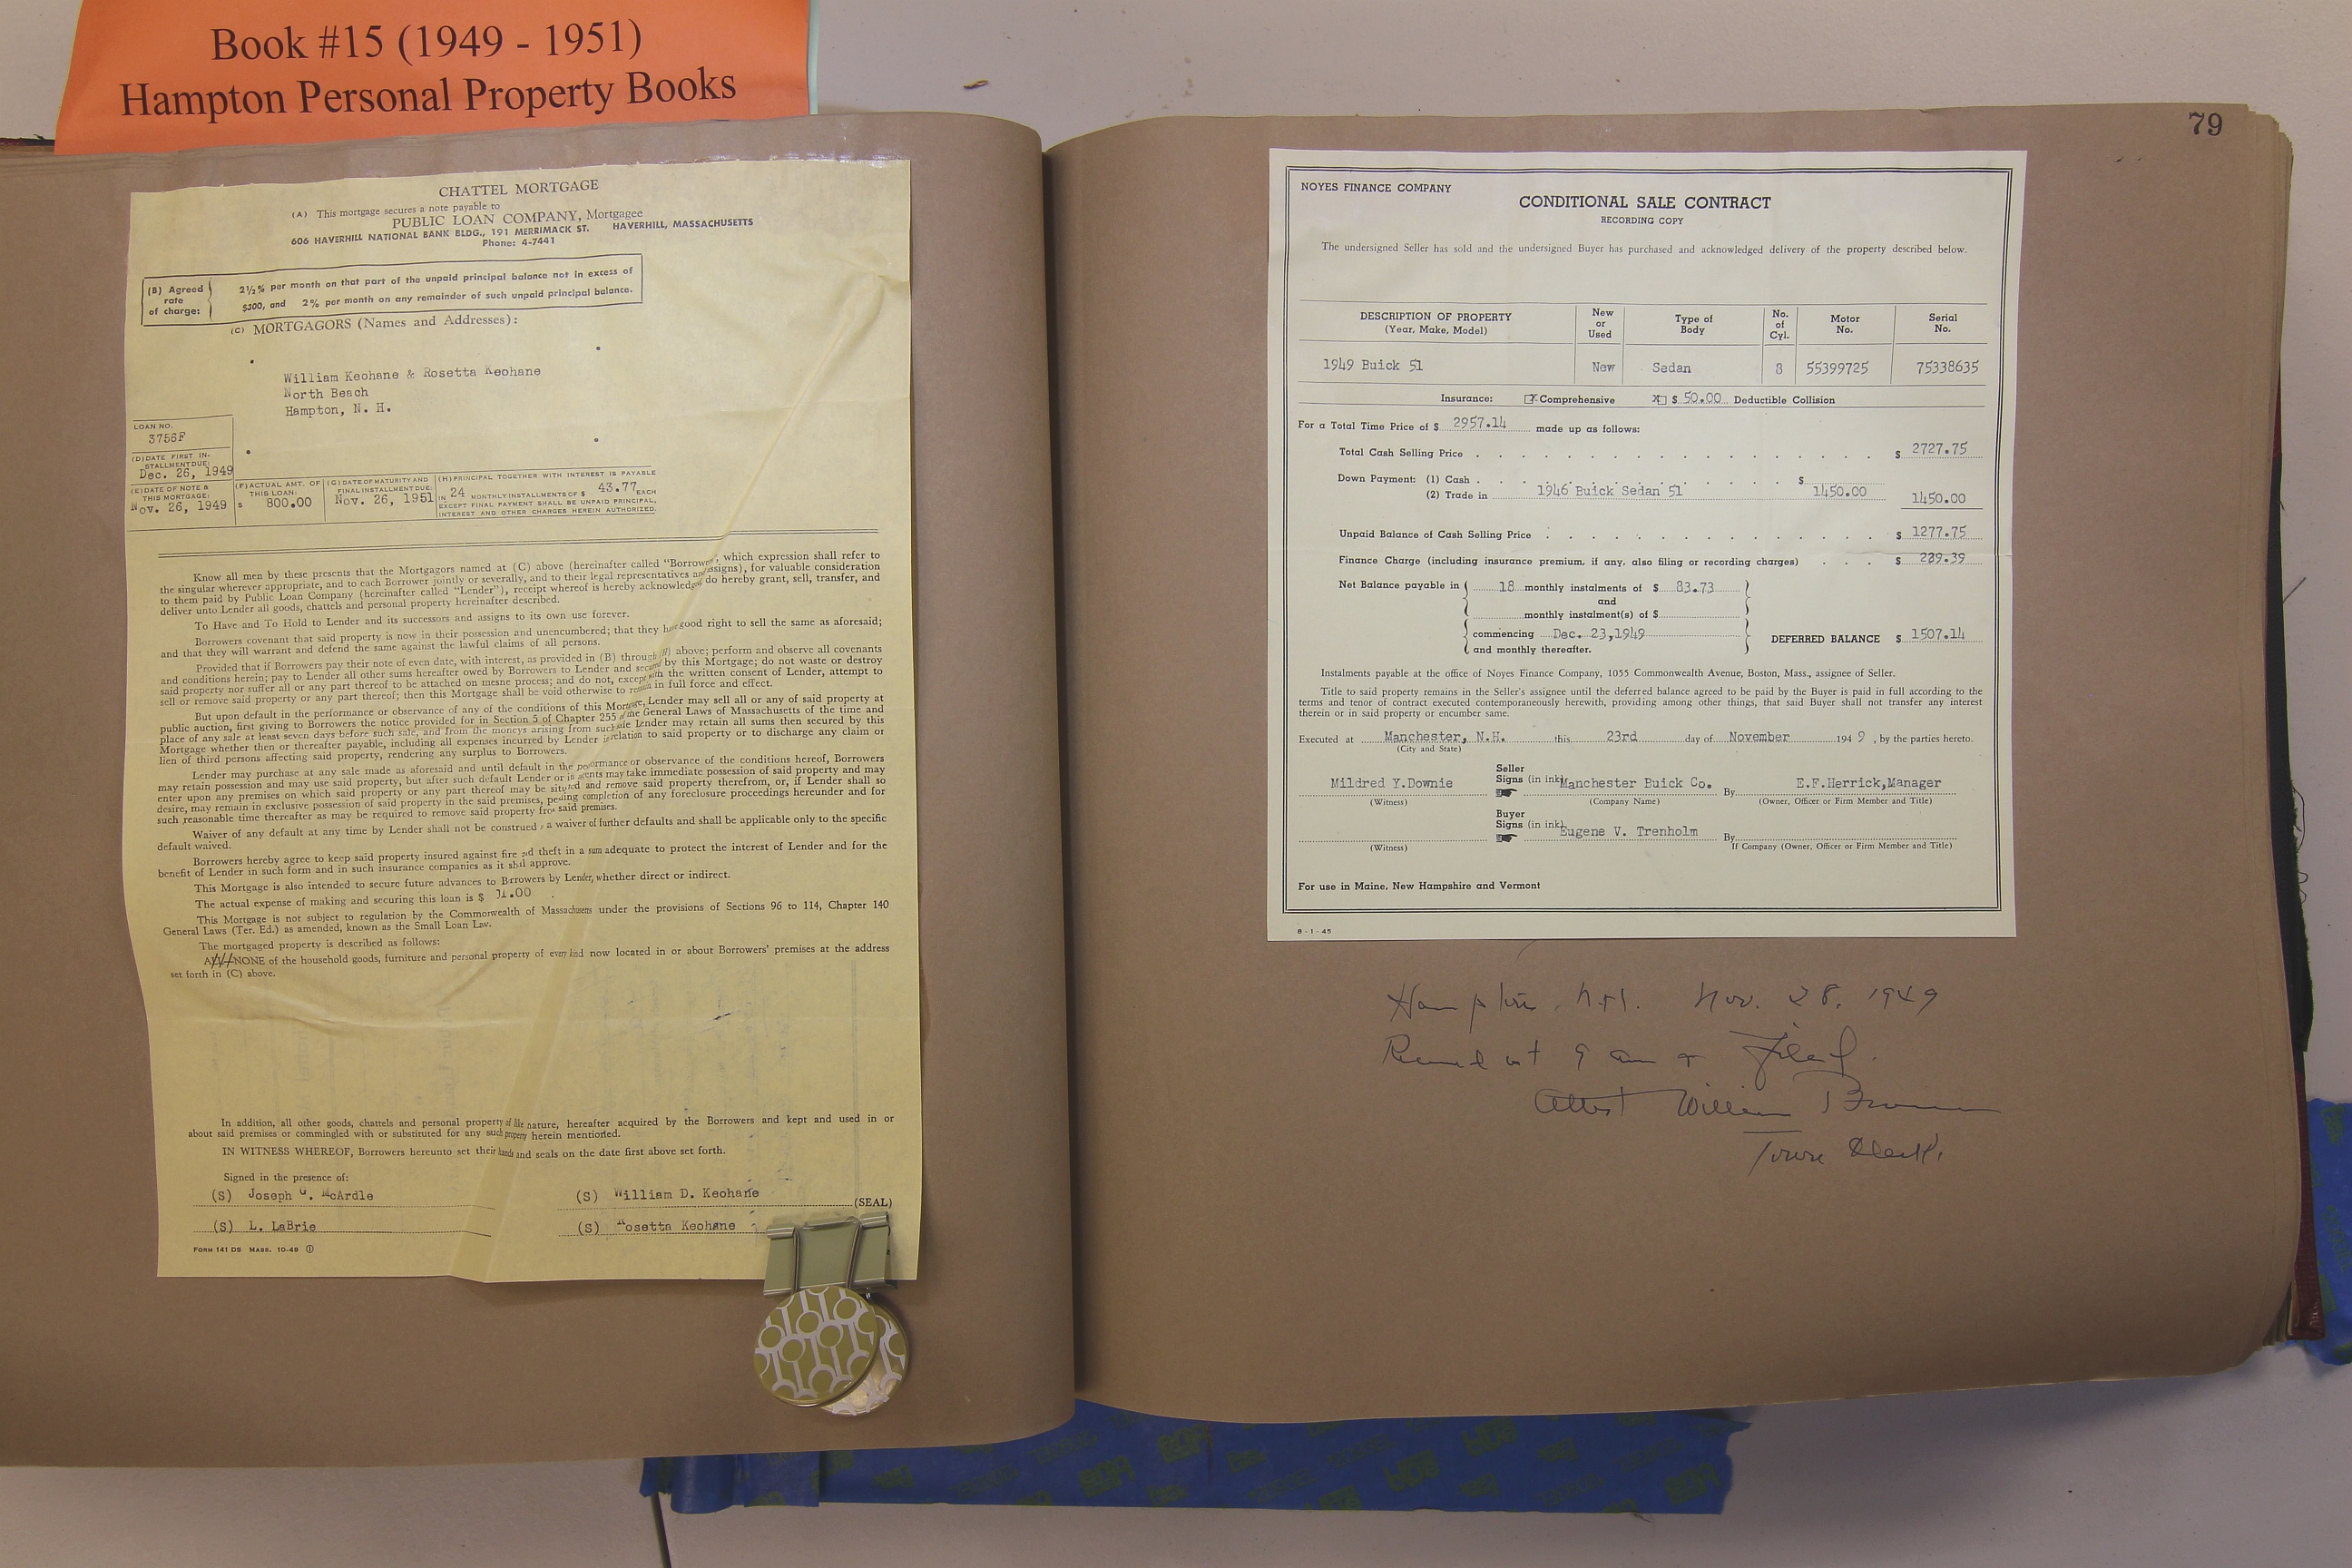 Book #15 (1949 - 1951)
Hampton Personal Property Books
CHATTEL MORTGAGE
(A) This mortgage secures a note payable to
PUBLIC LOAN COMPANY, Mortgagee
606 HAVERHILL NATIONAL BANK BLDG., 191 MERRIMACK ST. HAVERHILL, MASSACHUSETTS
Phone: 4-7441
(B) Agreed rate of charge:
2½% per month on that part of the unpaid principal balance not in excess of
$300, and 2% per month on any remainder of such unpaid principal balance.
(C) MORTGAGORS (Names and Addresses):
William Keohane & Rosetta Keohane
North Beach
Hampton, N. H.
LOAN NO.
3756F
(D) DATE FIRST IN-
STALLMENT DUE:
Dec. 26, 1949
(E) DATE OF NOTE &
THIS MORTGAGE:
Nov. 26, 1949
(F) ACTUAL AMT. OF
THIS LOAN:
$ 800.00
(G) DATE OF MATURITY AND
FINAL INSTALLMENT DUE:
Nov. 26, 1951
(H) PRINCIPAL TOGETHER WITH INTEREST IS PAYABLE
IN 24 MONTHLY INSTALLMENTS OF $ 43.77 EACH
EXCEPT FINAL PAYMENT SHALL BE UNPAID PRINCIPAL,
INTEREST AND OTHER CHARGES HEREIN AUTHORIZED.
Know all men by these presents that the Mortgagors named at (C) above (hereinafter called "Borrowers", which expression shall refer to
the singular wherever appropriate, and to each Borrower jointly or severally, and to their legal representatives and assigns), for valuable consideration
to them paid by Public Loan Company (hereinafter called "Lender"), receipt whereof is hereby acknowledged do hereby grant, sell, transfer, and
deliver unto Lender all goods, chattels and personal property hereinafter described.
To Have and To Hold to Lender and its successors and assigns to its own use forever.
Borrowers covenant that said property is now in their possession and unencumbered; that they have good right to sell the same as aforesaid;
and that they will warrant and defend the same against the lawful claims of all persons.
Provided that if Borrowers pay their note of even date, with interest, as provided in (B) through (H) above; perform and observe all covenants
and conditions herein; pay to Lender all other sums hereafter owed by Borrowers to Lender and secured by this Mortgage; do not waste or destroy
said property nor suffer all or any part thereof to be attached on mesne process; and do not, except with the written consent of Lender, attempt to
sell or remove said property or any part thereof; then this Mortgage shall be void otherwise to remain in full force and effect.
But upon default in the performance or observance of any of the conditions of this Mortgage, Lender may sell all or any of said property at
public auction, first giving to Borrowers the notice provided for in Section 5 of Chapter 255 of the General Laws of Massachusetts of the time and
place of any sale at least seven days before such sale, and from the moneys arising from such sale Lender may retain all sums then secured by this
Mortgage whether then or thereafter payable, including all expenses incurred by Lender in relation to said property or to discharge any claim or
lien of third persons affecting said property, rendering any surplus to Borrowers.
Lender may purchase at any sale made as aforesaid and until default in the performance or observance of the conditions hereof, Borrowers
may retain possession and may use said property, but after such default Lender or its agents may take immediate possession of said property and may
enter upon any premises on which said property or any part thereof may be situated and remove said property therefrom, or, if Lender shall so
desire, may remain in exclusive possession of said property in the said premises, pending completion of any foreclosure proceedings hereunder and for
such reasonable time thereafter as may be required to remove said property from said premises.
Waiver of any default at any time by Lender shall not be construed a waiver of further defaults and shall be applicable only to the specific
default waived.
Borrowers hereby agree to keep said property insured against fire and theft in a sum adequate to protect the interest of Lender and for the
benefit of Lender in such form and in such insurance companies as it shall approve.
This Mortgage is also intended to secure future advances to Borrowers by Lender, whether direct or indirect.
The actual expense of making and securing this loan is $ 11.00
This Mortgage is not subject to regulation by the Commonwealth of Massachusetts under the provisions of Sections 96 to 114, Chapter 140
General Laws (Ter. Ed.) as amended, known as the Small Loan Law.
The mortgaged property is described as follows:
NONE of the household goods, furniture and personal property of every kind now located in or about Borrowers' premises at the address
set forth in (C) above.
In addition, all other goods, chattels and personal property of like nature, hereafter acquired by the Borrowers and kept and used in or
about said premises or commingled with or substituted for any such property herein mentioned.
IN WITNESS WHEREOF, Borrowers hereunto set their hands and seals on the date first above set forth.
Signed in the presence of:
(S) Joseph G. McArdle
(S) William D. Keohane (SEAL)
(S) L. LaBrie
(S) Rosetta Keohane
FORM 141 DS MASS. 10-49
79
NOYES FINANCE COMPANY
CONDITIONAL SALE CONTRACT
RECORDING COPY
The undersigned Seller has sold and the undersigned Buyer has purchased and acknowledged delivery of the property described below.
DESCRIPTION OF PROPERTY (Year, Make, Model) New or Used Type of Body No. of Cyl. Motor No. Serial No.
1949 Buick 51 New Sedan 8 55399725 75338635
Insurance: Comprehensive $ 50.00 Deductible Collision
For a Total Time Price of $ 2957.14 made up as follows:
Total Cash Selling Price $ 2727.75
Down Payment: (1) Cash $
(2) Trade in 1946 Buick Sedan 51 1450.00 1450.00
Unpaid Balance of Cash Selling Price $ 1277.75
Finance Charge (including insurance premium, if any, also filing or recording charges) $ 229.39
Net Balance payable in 18 monthly instalments of $ 83.73
and
monthly instalment(s) of $
commencing Dec. 23,1949
and monthly thereafter.
DEFERRED BALANCE $ 1507.14
Instalments payable at the office of Noyes Finance Company, 1055 Commonwealth Avenue, Boston, Mass., assignee of Seller.
Title to said property remains in the Seller's assignee until the deferred balance agreed to be paid by the Buyer is paid in full according to the
terms and tenor of contract executed contemporaneously herewith, providing among other things, that said Buyer shall not transfer any interest
therein or in said property or encumber same.
Executed at Manchester, N.H. this 23rd day of November 194 9 , by the parties hereto.
(City and State)
Mildred Y.Downie Seller Signs (in ink) Manchester Buick Co. By E.F.Herrick,Manager
(Witness) (Company Name) (Owner, Officer or Firm Member and Title)
Buyer Signs (in ink) Eugene V. Trenholm By
(Witness) If Company (Owner, Officer or Firm Member and Title)
For use in Maine, New Hampshire and Vermont
8-1-45
Hampton, N.H. Nov. 28, 1949
Received at 9 am + Filed.
Attest William Brown
Town Clerk